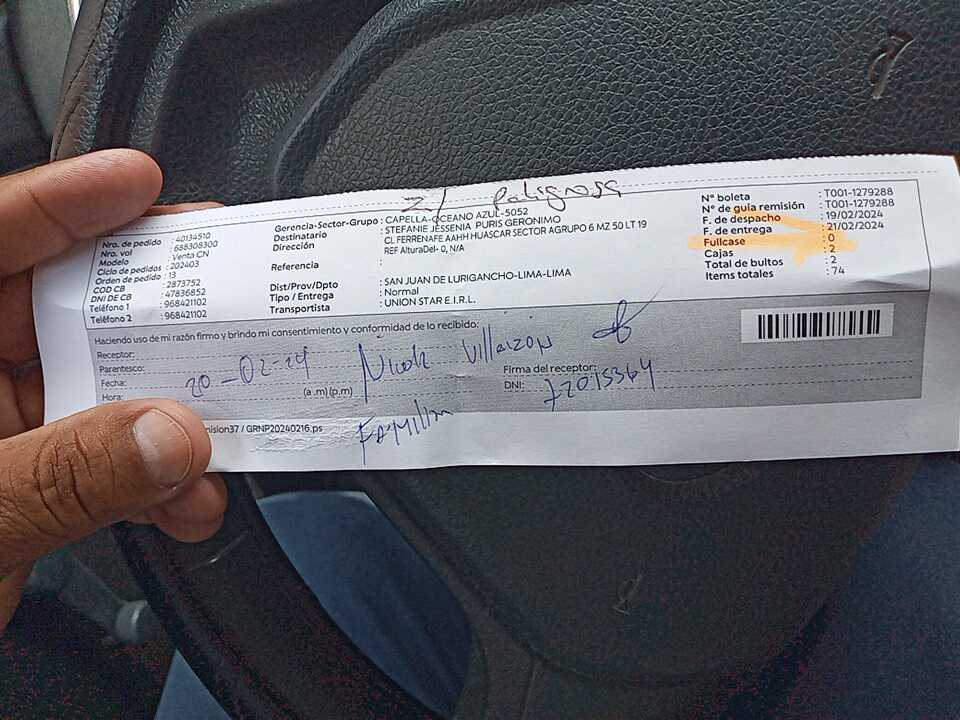 Z/ Peligrosa
Nro. de pedido : 40134510
Nro. vol : 688308300
Modelo : Venta CN
Ciclo de pedidos : 202403
Orden de pedido : 13
COD CB : 2873752
DNI DE CB : 47836852
Teléfono 1 : 968421102
Teléfono 2 : 968421102
Gerencia-Sector-Grupo : CAPELLA-OCEANO AZUL-5052
Destinatario : STEFANIE JESSENIA PURIS GERONIMO
Dirección : CL FERRENAFE AAHH HUASCAR SECTOR AGRUPO 6 MZ 50 LT 19
REF AlturaDel- 0, N/A
Referencia :
Dist/Prov/Dpto : SAN JUAN DE LURIGANCHO-LIMA-LIMA
Tipo / Entrega : Normal
Transportista : UNION STAR E.I.R.L.
N° boleta : T001-1279288
N° de guía remisión : T001-1279288
F. de despacho : 19/02/2024
F. de entrega : 21/02/2024
Fullcase : 0
Cajas : 2
Total de bultos : 2
Items totales : 74
Haciendo uso de mi razón firmo y brindo mi consentimiento y conformidad de lo recibido:
Receptor:
Parentesco:
Fecha: 20-02-24
Hora: (a.m)(p.m)
Firma del receptor:
DNI: 72015364
Familia
nision37 / GRNP20240216.ps